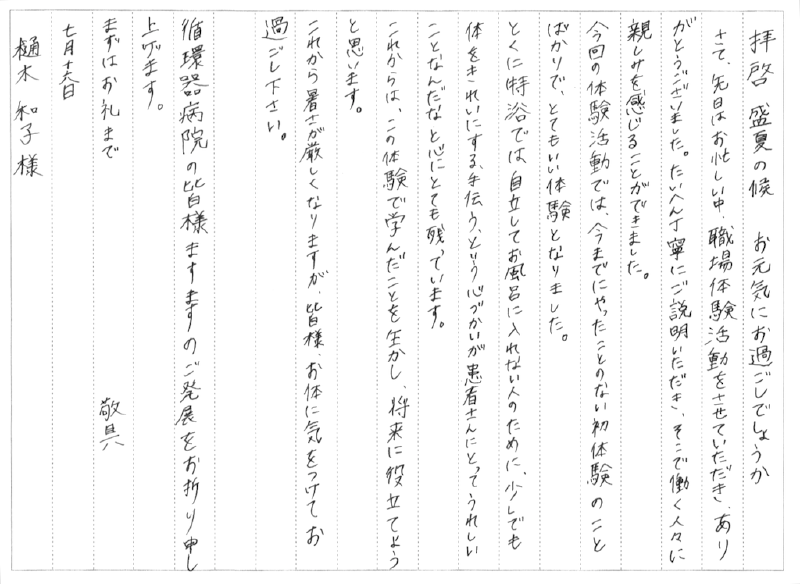 拝啓 盛夏の候 お元気にお過ごしでしょうか
さて、先日はお忙しい中、職場体験活動をさせていただき、あり
がとうございました。たいへん丁寧にご説明いただき、そこで働く人々に
親しみを感じることができました。
今回の体験活動では、今までにやったことのない初体験のこと
ばかりで、とてもいい体験となりました。
とくに特浴では、自立してお風呂に入れない人のために、少しでも
体をきれいにする、手伝う、という心づかいが患者さんにとってうれしい
ことなんだな と心にとても残っています。
これからは、この体験で学んだことを生かし、将来に役立てよう
と思います。
これから暑さが厳しくなりますが、皆様、お体に気をつけてお
過ごし下さい。
循環器病院の皆様ますますのご発展をお折り申し
上げます。
まずはお礼まで
敬具
七月十六日
樋木 和子様